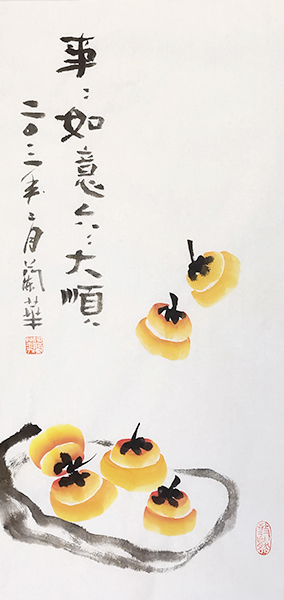 事：如意六：大順
二〇一二年二月蘭華